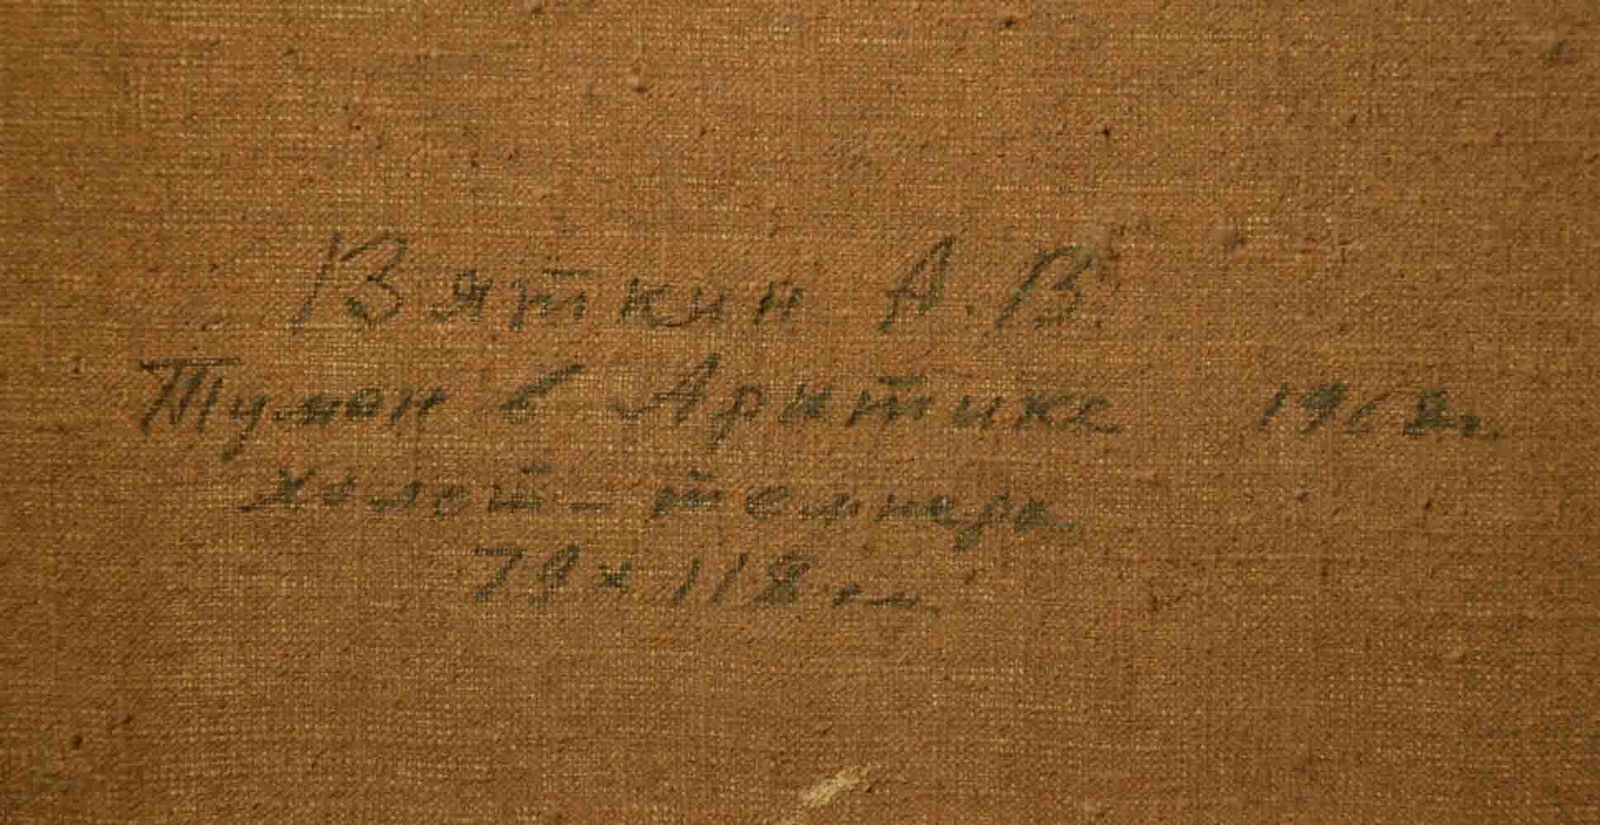 Вяткин А.В.
Туман в Арктике 1968г.
холст - темпера
79 x 118 см